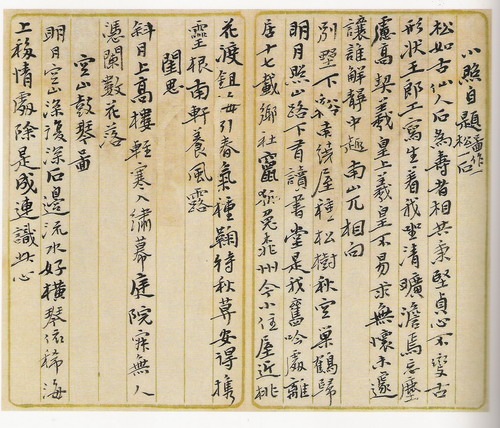 小照自題畫作松石
松如古仙人石為壽者相共秉堅貞心不變古
形狀王郎工寫生着我坐清曠澹焉忘塵
慮高契羲皇上羲皇不易求無懷未遽
讓誰解靜中趣南山兀相向
別墅下繞屋種松樹秋空巢鶴歸
明月照山路下有讀書堂是我舊吟處離
居十七載鄉社竄狐兔杭州今小住屋近桃
花渡鉏梅引春氣種鞠待秋暮安得攜
靈根南軒養風露
閨思
斜日上高樓輕寒入繡幕庭院寂無人
憑闌數花落
空山鼓琴圖
明月空山深復深石邊流水好橫琴依稀海
上移情處除是成連識此心